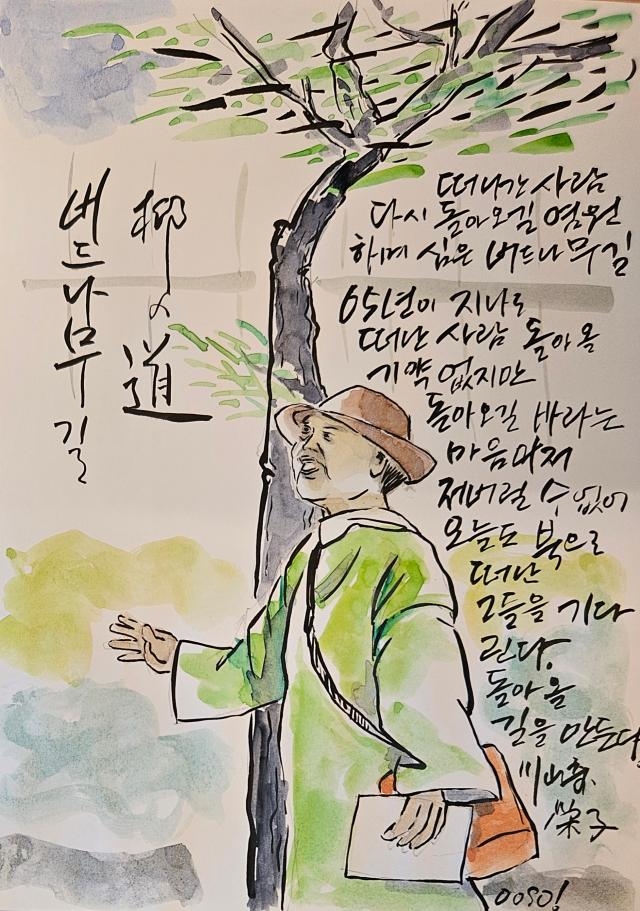 버드나무길
柳の道
떠나간 사람
다시 돌아오길 염원
하며 심은 버드나무길
65년이 지나도
떠난 사람 돌아올
기약 없지만
돌아오길 바라는
마음마저
저버릴 수 없어
오늘도 북으로
떠난
그들을 기다
린다.
돌아올
길을 만든다.
川崎
栄子
OOSO!